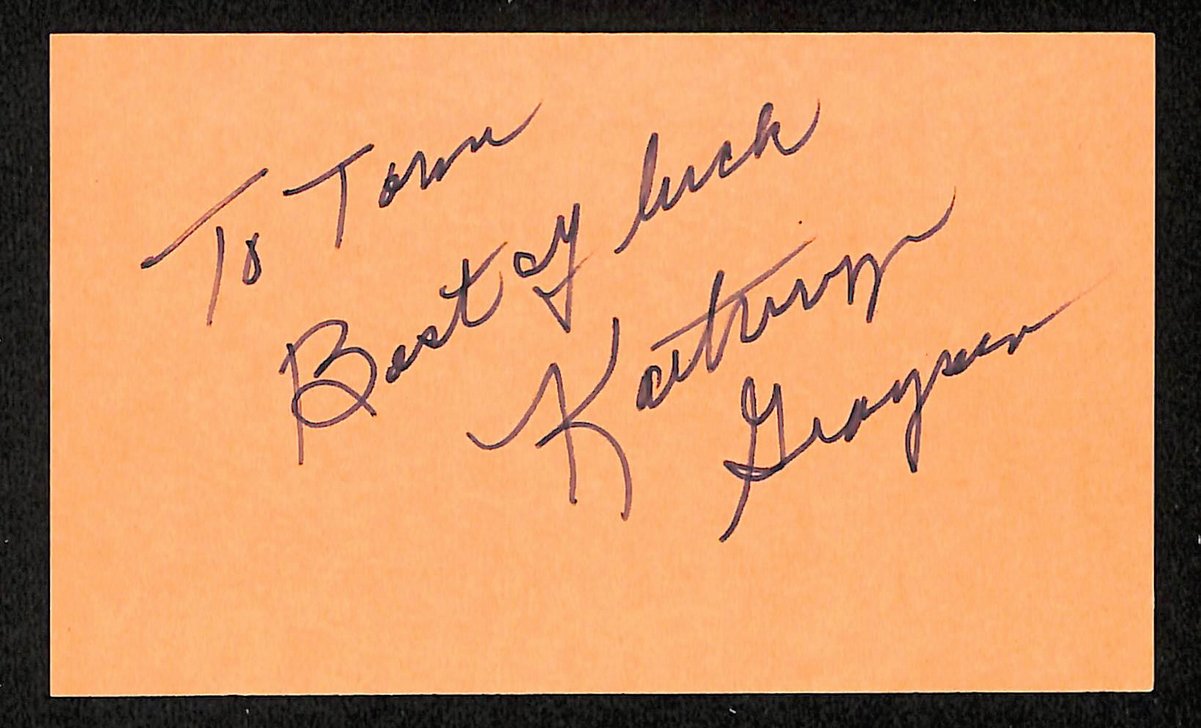 To Tom
Best of luck
Kathryn
Grayson